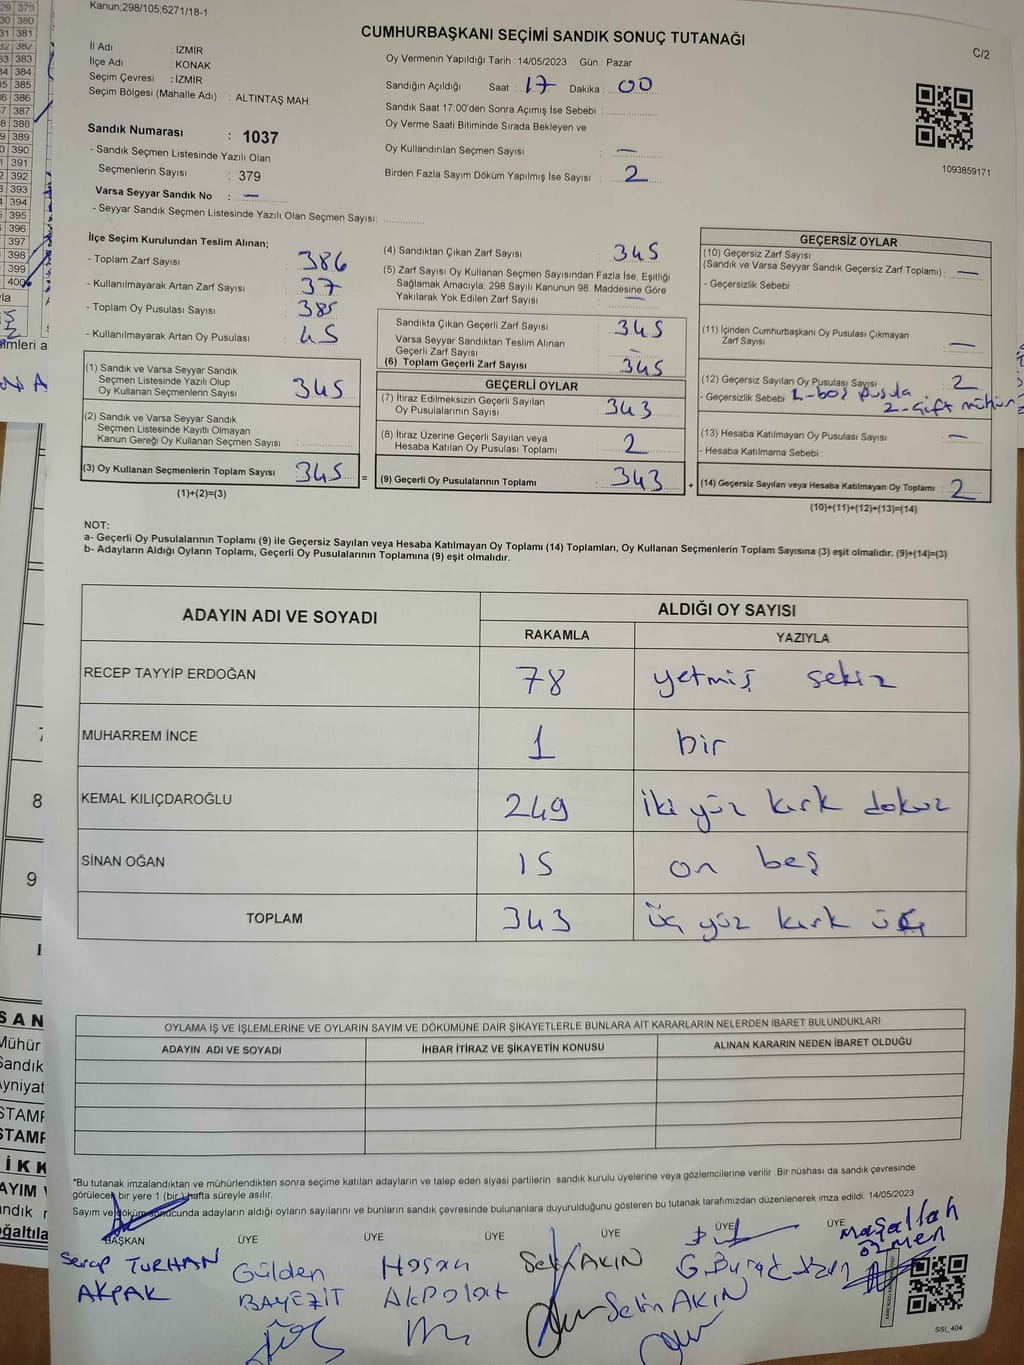 Kanun;298/105;6271/18-1
CUMHURBAŞKANI SEÇİMİ SANDIK SONUÇ TUTANAĞI
C/2
İl Adı : İZMİR
İlçe Adı : KONAK
Seçim Çevresi : İZMİR
Seçim Bölgesi (Mahalle Adı) : ALTINTAŞ MAH.
Sandık Numarası : 1037
- Sandık Seçmen Listesinde Yazılı Olan
Seçmenlerin Sayısı : 379
Varsa Seyyar Sandık No : —
- Seyyar Sandık Seçmen Listesinde Yazılı Olan Seçmen Sayısı:
Oy Vermenin Yapıldığı Tarih : 14/05/2023 Gün : Pazar
Sandığın Açıldığı Saat : 17 Dakika : 00
Sandık Saat 17:00'den Sonra Açımış İse Sebebi :
Oy Verme Saati Bitiminde Sırada Bekleyen ve
Oy Kullandırılan Seçmen Sayısı : —
Birden Fazla Sayım Döküm Yapılmış İse Sayısı : 2
1093859171
İlçe Seçim Kurulundan Teslim Alınan;
- Toplam Zarf Sayısı : 386
- Kullanılmayarak Artan Zarf Sayısı : 37
- Toplam Oy Pusulası Sayısı : 385
- Kullanılmayarak Artan Oy Pusulası : 45
(1) Sandık ve Varsa Seyyar Sandık
Seçmen Listesinde Yazılı Olup
Oy Kullanan Seçmenlerin Sayısı : 345
(2) Sandık ve Varsa Seyyar Sandık
Seçmen Listesinde Kayıtlı Olmayan
Kanun Gereği Oy Kullanan Seçmen Sayısı :
(3) Oy Kullanan Seçmenlerin Toplam Sayısı : 345 =
(1)+(2)=(3)
(4) Sandıktan Çıkan Zarf Sayısı : 345
(5) Zarf Sayısı Oy Kullanan Seçmen Sayısından Fazla İse, Eşitliği
Sağlamak Amacıyla; 298 Sayılı Kanunun 98. Maddesine Göre
Yakılarak Yok Edilen Zarf Sayısı : —
Sandıkta Çıkan Geçerli Zarf Sayısı : 345
Varsa Seyyar Sandıktan Teslim Alınan
Geçerli Zarf Sayısı : —
(6) Toplam Geçerli Zarf Sayısı : 345
GEÇERLİ OYLAR
(7) İtiraz Edilmeksizin Geçerli Sayılan
Oy Pusulalarının Sayısı : 343
(8) İtiraz Üzerine Geçerli Sayılan veya
Hesaba Katılan Oy Pusulası Toplamı : 2
(9) Geçerli Oy Pusulalarının Toplamı : 343 +
GEÇERSİZ OYLAR
(10) Geçersiz Zarf Sayısı
(Sandık ve Varsa Seyyar Sandık Geçersiz Zarf Toplamı) : —
- Geçersizlik Sebebi :
(11) İçinden Cumhurbaşkanı Oy Pusulası Çıkmayan
Zarf Sayısı : —
(12) Geçersiz Sayılan Oy Pusulası Sayısı : 2
- Geçersizlik Sebebi 1-boş pusula
2-çift mühür
(13) Hesaba Katılmayan Oy Pusulası Sayısı : —
- Hesaba Katılmama Sebebi :
(14) Geçersiz Sayılan veya Hesaba Katılmayan Oy Toplamı : 2
(10)+(11)+(12)+(13)=(14)
NOT:
a- Geçerli Oy Pusulalarının Toplamı (9) ile Geçersiz Sayılan veya Hesaba Katılmayan Oy Toplamı (14) Toplamları, Oy Kullanan Seçmenlerin Toplam Sayısına (3) eşit olmalıdır. (9)+(14)=(3)
b- Adayların Aldığı Oyların Toplamı, Geçerli Oy Pusulalarının Toplamına (9) eşit olmalıdır.
ADAYIN ADI VE SOYADI
ALDIĞI OY SAYISI
RAKAMLA YAZIYLA
RECEP TAYYİP ERDOĞAN 78 yetmiş sekiz
MUHARREM İNCE 1 bir
KEMAL KILIÇDAROĞLU 249 iki yüz kırk dokuz
SİNAN OĞAN 15 on beş
TOPLAM 343 üç yüz kırk üç
OYLAMA İŞ VE İŞLEMLERİNE VE OYLARIN SAYIM VE DÖKÜMÜNE DAİR ŞİKAYETLERLE BUNLARA AİT KARARLARIN NELERDEN İBARET BULUNDUKLARI
ADAYIN ADI VE SOYADI İHBAR İTİRAZ VE ŞİKAYETİN KONUSU ALINAN KARARIN NEDEN İBARET OLDUĞU
*Bu tutanak imzalandıktan ve mühürlendikten sonra seçime katılan adayların ve talep eden siyasi partilerin sandık kurulu üyelerine veya gözlemcilerine verilir .Bir nüshası da sandık çevresinde
görülecek bir yere 1 (bir) hafta süreyle asılır.
Sayım ve döküm sonucunda adayların aldığı oyların sayılarını ve bunların sandık çevresinde bulunanlara duyurulduğunu gösteren bu tutanak tarafımızdan düzenlenerek imza edildi. 14/05/2023
BAŞKAN ÜYE ÜYE ÜYE ÜYE ÜYE
Serap TURHAN
AKPAK
Gülden
BAYEZİT
Hasan
Akpolat
Selin AKIN
Selin AKIN
Maşallah
özmen
SSİ_404